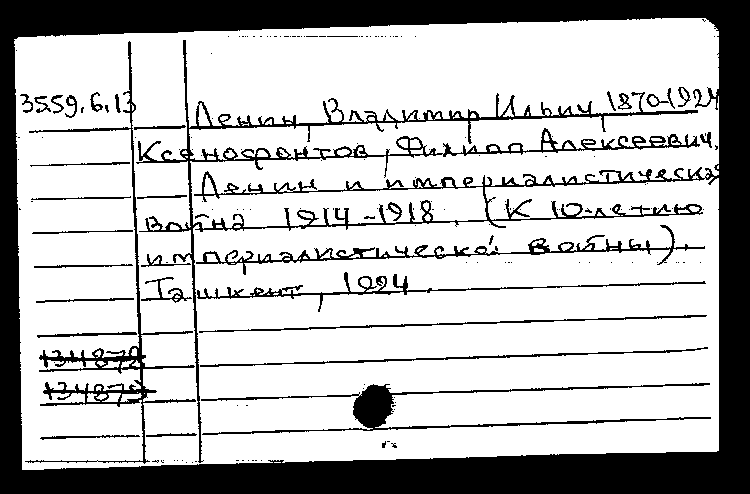 3559.6.13
Ленин, Владимир Ильич, 1870-1924
Ксенофонтов, Филипп Алексеевич.
Ленин и империалистическая
война 1914-1918. (К 10-летию
империалистической войны).
Ташкент, 1924.
134872
134873